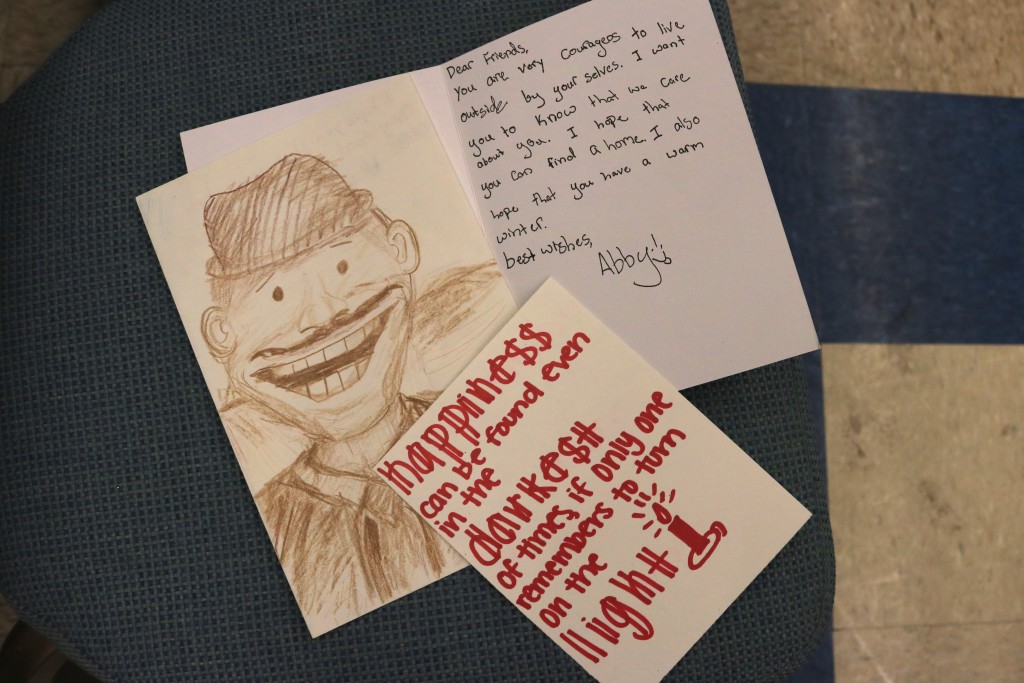 Dear Friends,
You are very courageos to live
outside by your selves. I want
you to know that we care
about you. I hope that
you can find a home. I also
hope that you have a warm
winter.
best wishes,
Abby
happine$$
can be found even
in the
darke$t
of times if only one
remembers to turn
on the
light